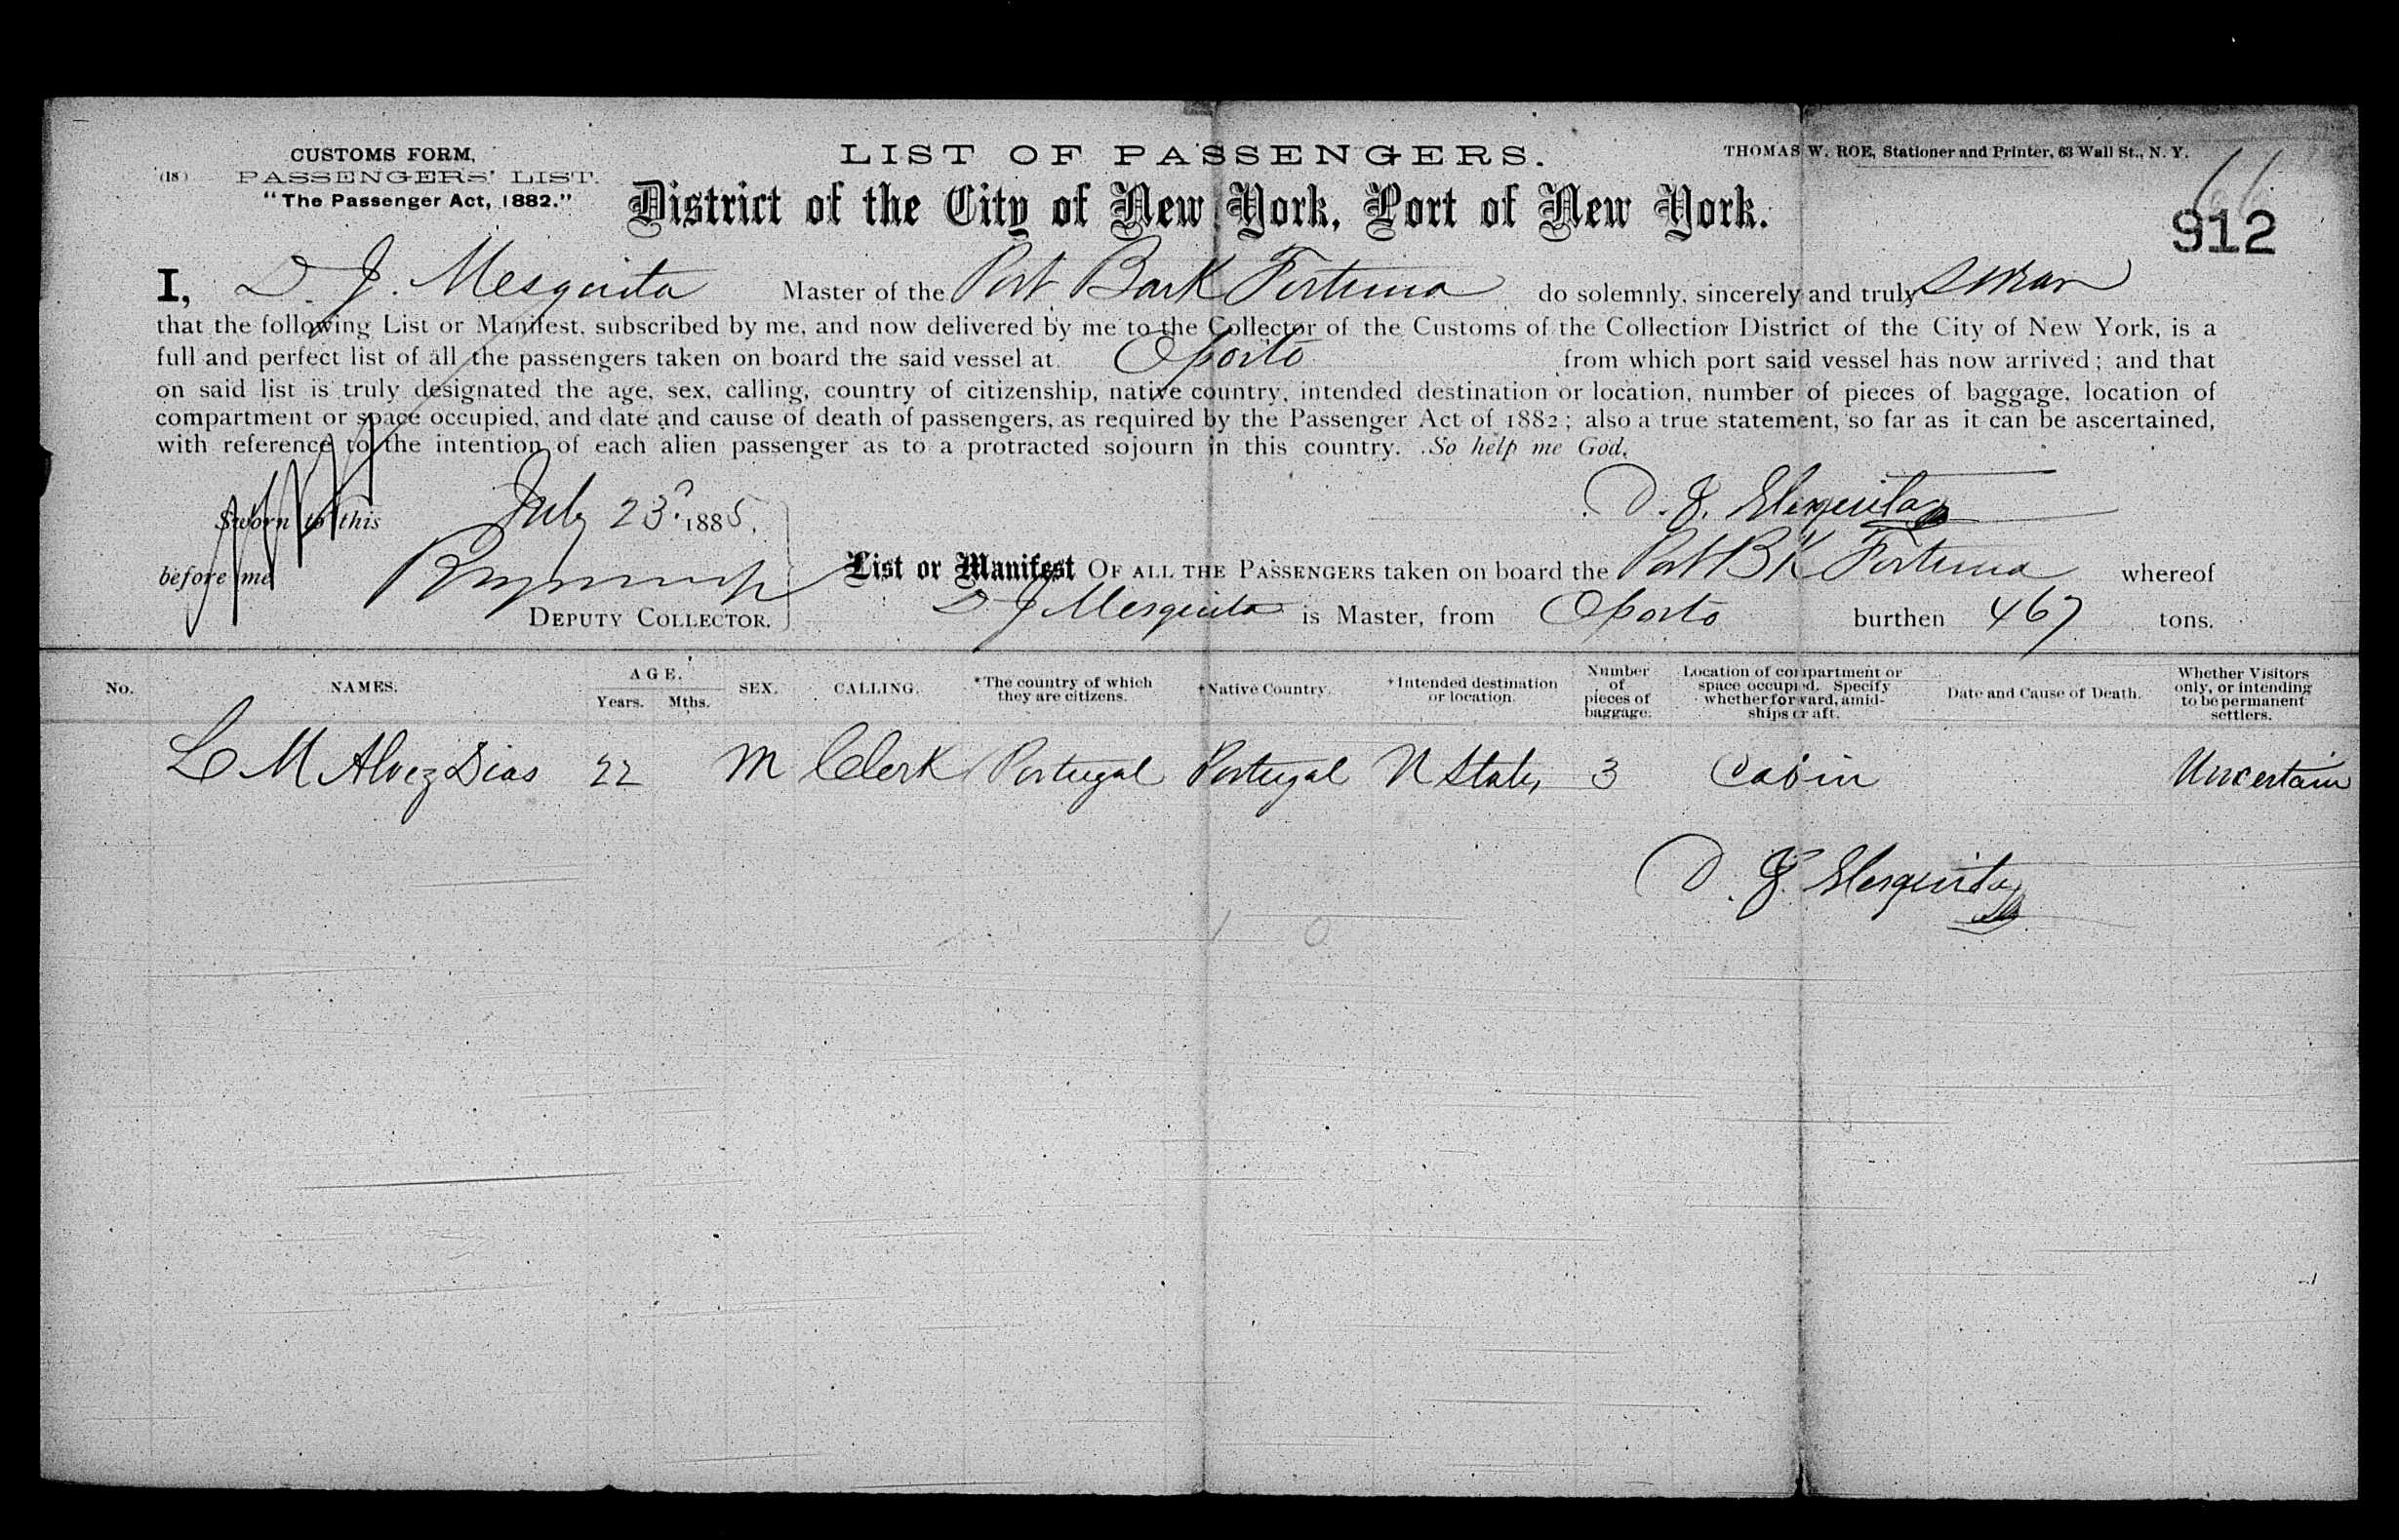 CUSTOMS FORM,
(18) PASSENGERS' LIST.
"The Passenger Act, 1882."
LIST OF PASSENGERS.
District of the City of New York, Port of New York.
THOMAS W. ROE, Stationer and Printer, 63 Wall St., N. Y.
66
912
I, D. J. Mesquita Master of the Port Bark Fortuna do solemnly, sincerely and truly swear
that the following List or Manifest, subscribed by me, and now delivered by me to the Collector of the Customs of the Collection District of the City of New York, is a
full and perfect list of all the passengers taken on board the said vessel at Oporto from which port said vessel has now arrived; and that
on said list is truly designated the age, sex, calling, country of citizenship, native country, intended destination or location, number of pieces of baggage, location of
compartment or space occupied, and date and cause of death of passengers, as required by the Passenger Act of 1882; also a true statement, so far as it can be ascertained,
with reference to the intention of each alien passenger as to a protracted sojourn in this country. So help me God.
Sworn to this July 23d 1885, D. J. Mesquita
before me
DEPUTY COLLECTOR.
List or Manifest OF ALL THE PASSENGERS taken on board the Port Bk Fortuna whereof
D J Mesquita is Master, from Oporto burthen 467 tons.
No. NAMES. AGE. Years. Mths. SEX. CALLING. *The country of which they are citizens. *Native Country. *Intended destination or location. Number of pieces of baggage. Location of compartment or space occupied. Specify whether forward, amidships or aft. Date and Cause of Death. Whether Visitors only, or intending to be permanent settlers.
L M Alvez Dias 22 M Clerk Portugal Portugal U States 3 Cabin Uncertain
D. J. Mesquita
1 0